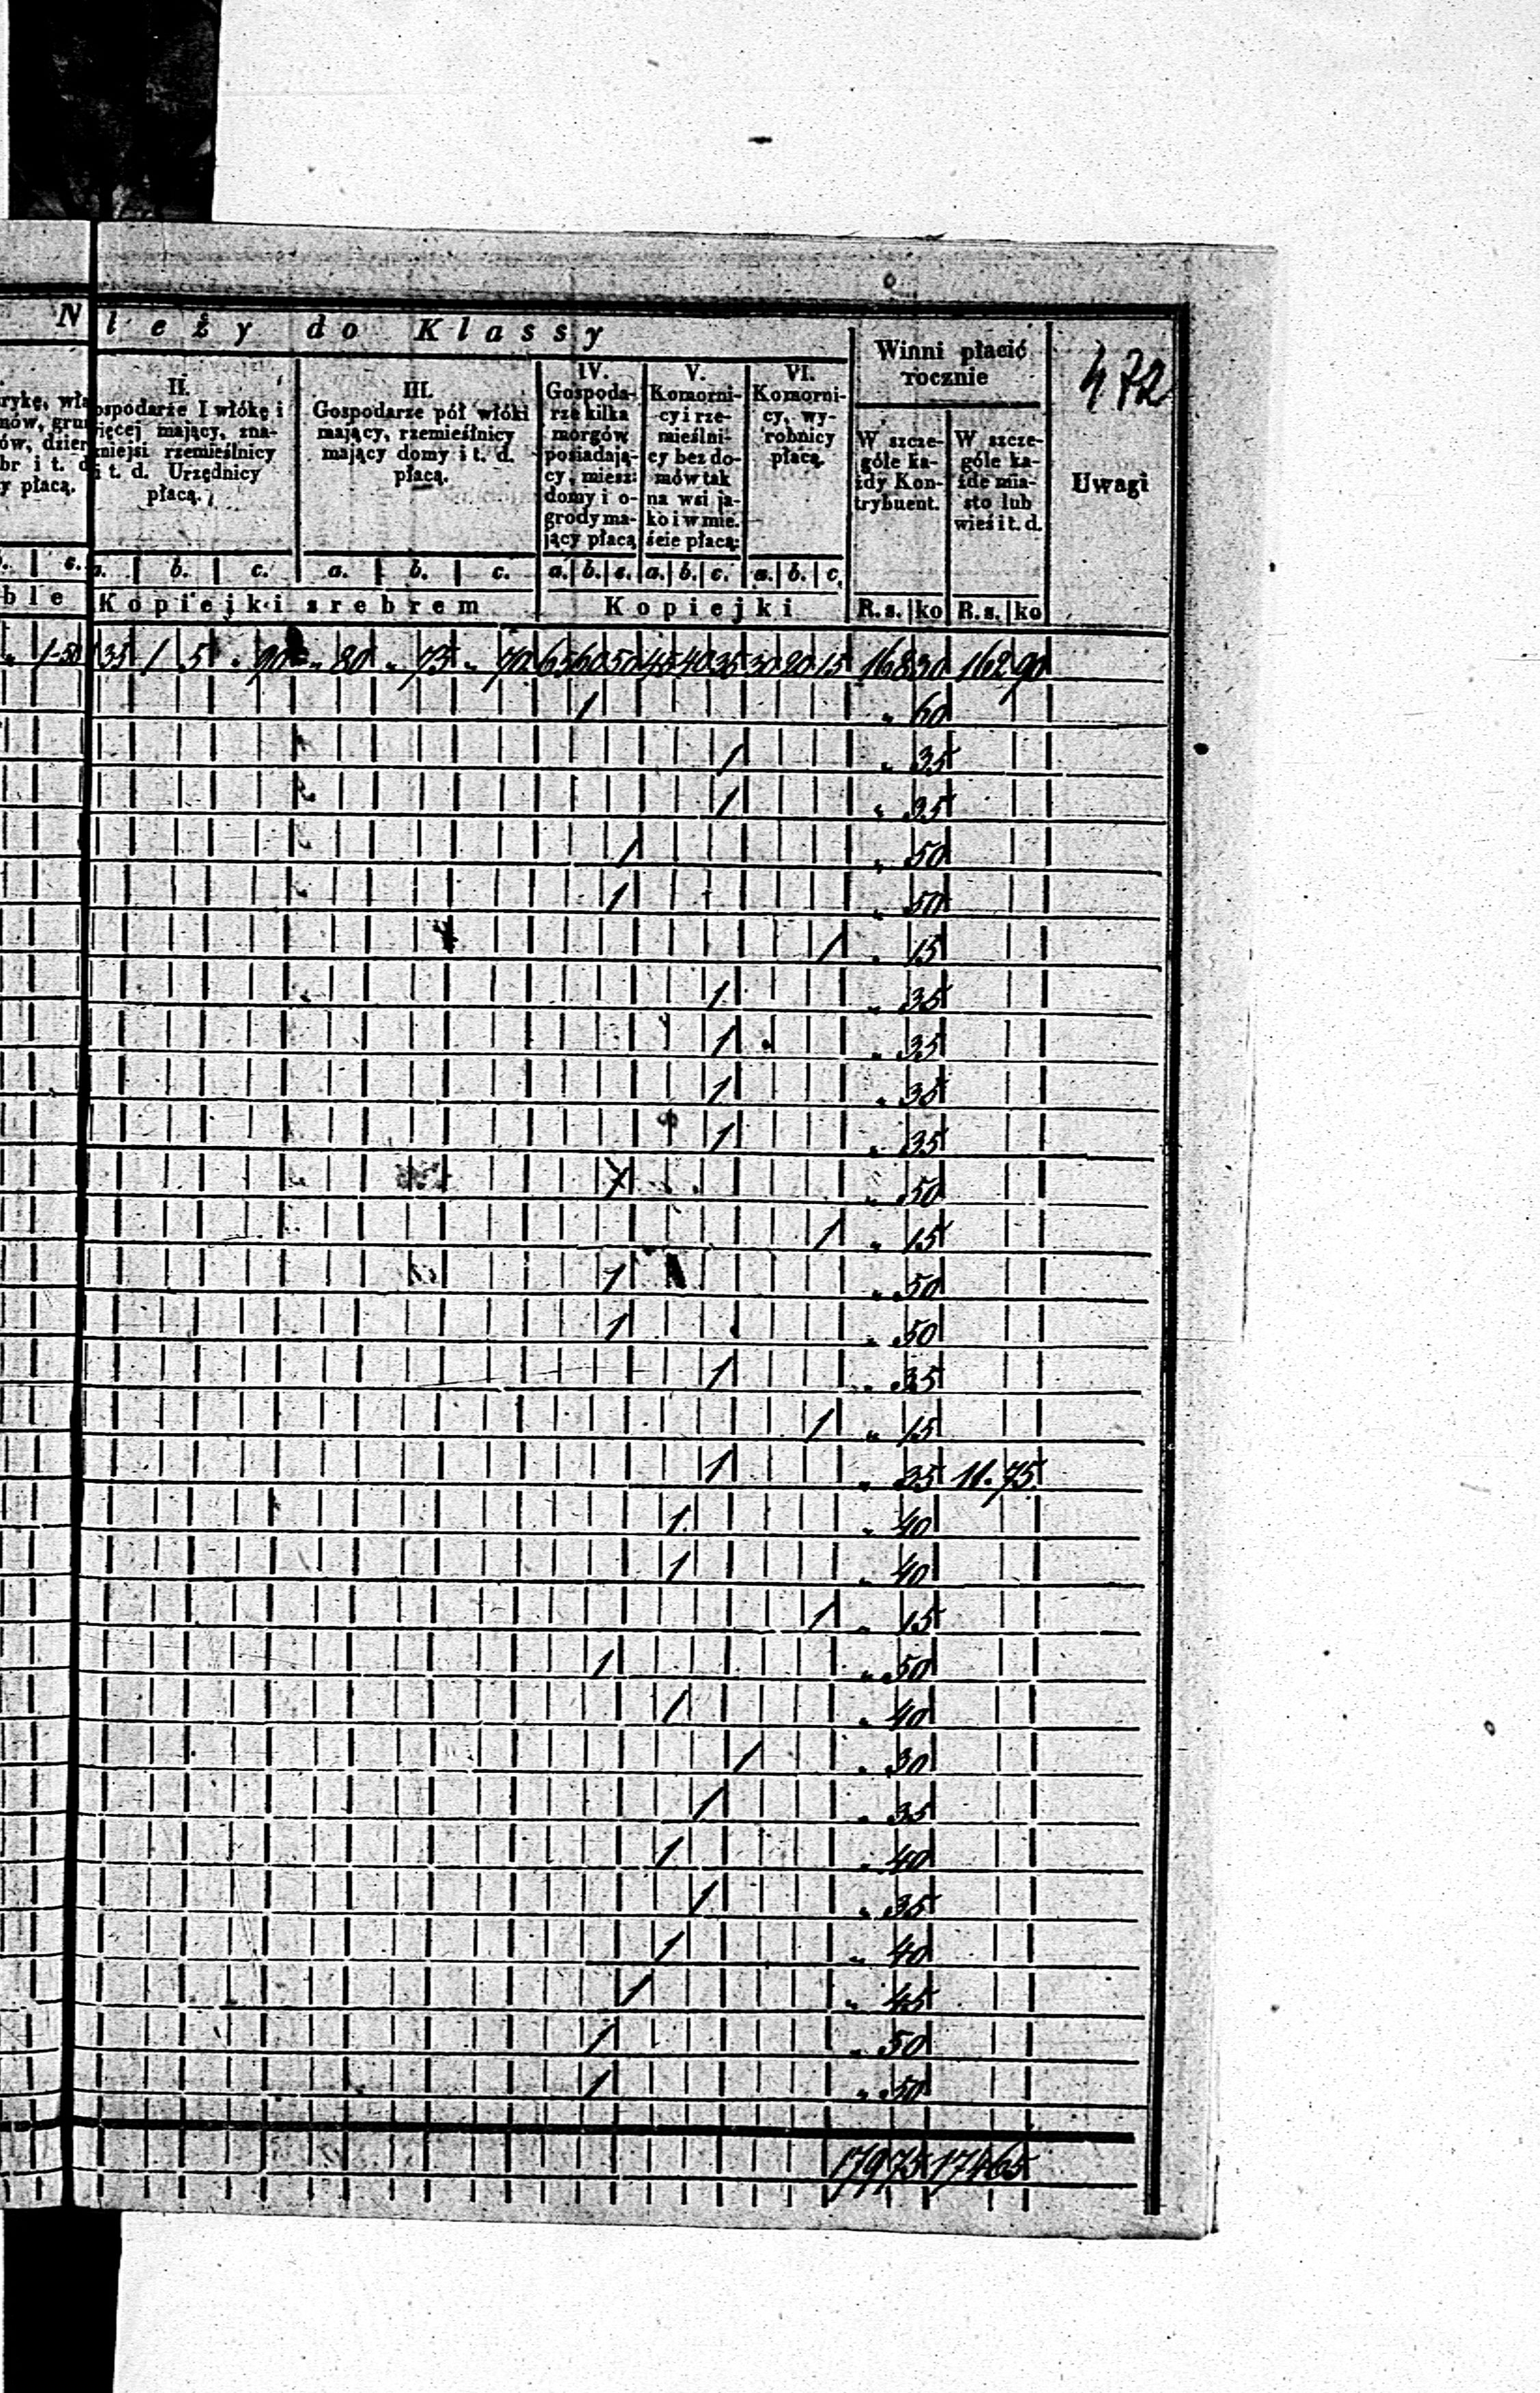 N leży do Klassy
Winni płacić
rocznie
472
II.
ospodarze I włókę i
ięcej mający, zna-
niejsi rzemieślnicy
i t. d. Urzędnicy
płacą.
III.
Gospodarze pół włóki
mający, rzemieślnicy
mający domy i t. d.
płacą.
IV.
Gospoda-
rze kilka
morgów
posiadają-
cy, miesz:
domy i o-
grody ma-
jący płacą
V.
Komorni-
cy i rze-
mieślni-
cy bez do-
mów tak
na wsi ja-
ko i w mie.
ście płacą:
VI.
Komorni-
cy, wy-
robnicy
płacą.
W szcze-
góle ka-
żdy Kon-
trybuent.
W szcze-
góle ka-
żde mia-
sto lub
wieś i t. d.
Uwagi
rykę, wła
nów, gru
ów, dzier
br i t. d
y płacą.
c. a. b. c. a. b. c. a. b. c. a. b. c. a. b. c.
ble Kopiejki srebrem Kopiejki R.s. ko R.s. ko
1-50 135 1 5 " 90 " 80 " 75 " 70 65 60 50 45 40 35 30 20 15 168 30 162 90
1 " 60
1 " 35
1 " 35
1 " 50
1 " 50
1 " 15
1 " 35
1 " 35
1 " 35
1 " 35
1 " 50
1 " 15
1 " 50
1 " 50
1 " 35
1 " 15
1 " 35 11. 75
1 " 40
1 " 40
1 " 15
1 " 50
1 " 40
1 " 30
1 " 35
1 " 40
1 " 35
1 " 40
1 " 45
1 " 50
1 " 50
179 75 174 65